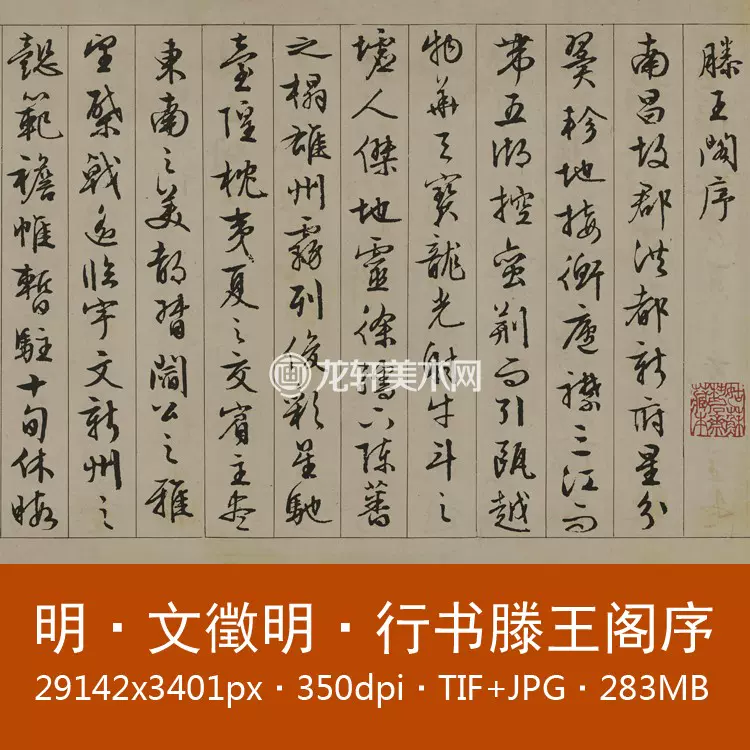 滕王閣序
南昌故郡洪都新府星分
翼軫地接衡廬襟三江而
帶五湖控蠻荊而引甌越
物華天寶龍光射牛斗之
墟人傑地靈徐孺下陳蕃
之榻雄州霧列俊彩星馳
臺隍枕夷夏之交賓主盡
東南之美都督閻公之雅
望棨戟遙臨宇文新州之
懿範襜帷暫駐十旬休暇
画 龙轩美术网
明·文徵明·行书滕王阁序
29142x3401px·350dpi·TIF+JPG·283MB